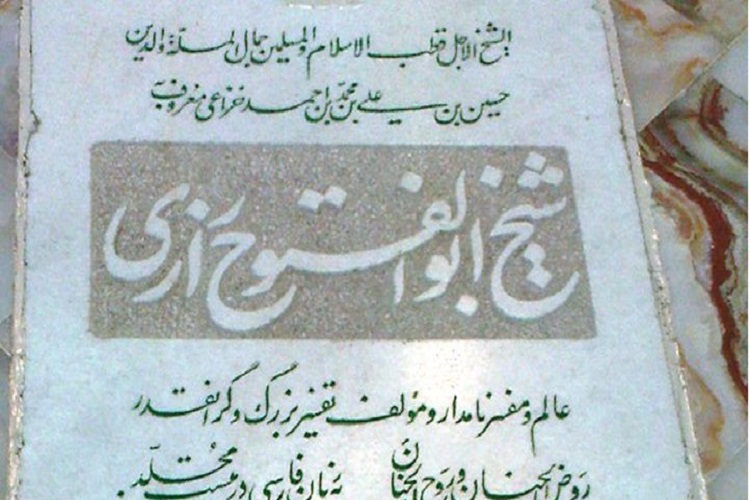 الشیخ الاجل قطب الاسلام والمسلمین جمال الملة والدین
حسین بن علی بن محمد بن احمد خزاعی معروف به
شیخ ابوالفتوح رازی
عالم و مفسر نامدار و مؤلف تفسیر بزرگ و گرانقدر
روض الجنان و روح الجنان به زبان فارسی در بیست مجلد